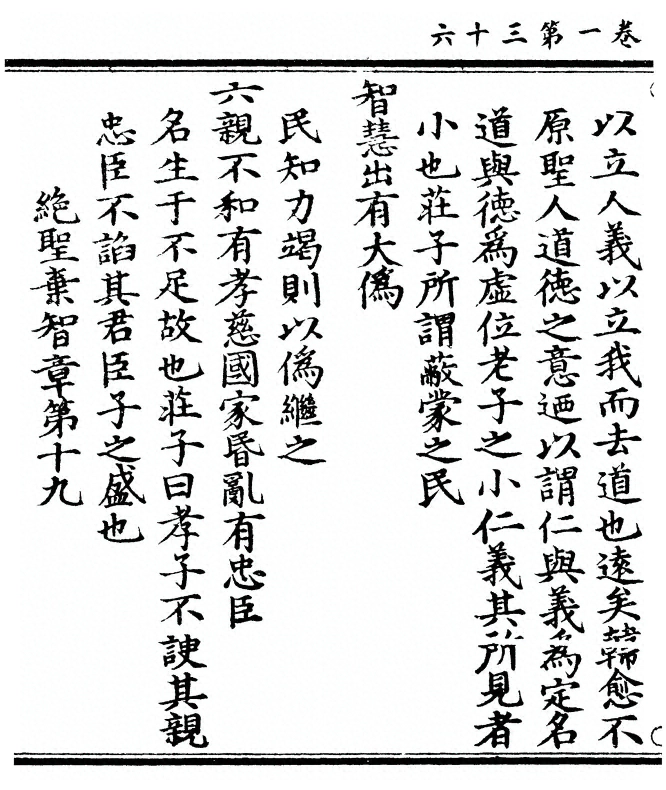 卷一第三十六
以立人義以立我而去道也遠矣韓愈不
原聖人道德之意迺以謂仁與義為定名
道與德為虛位老子之小仁義其所見者
小也莊子所謂蔽蒙之民
智慧出有大偽
民知力竭則以偽繼之
六親不和有孝慈國家昬亂有忠臣
名生于不足故也莊子曰孝子不諛其親
忠臣不諂其君臣子之盛也
絕聖棄智章第十九